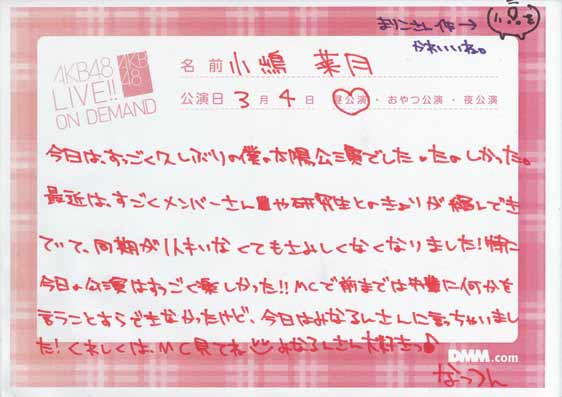 まりこさん作→
かわいいね。
AKB48
LIVE!!
ON DEMAND
AKB
48
名前 小嶋 菜月
公演日 3月4日 昼公演・おやつ公演・夜公演
今日は、すっごく久しぶりの僕の太陽公演でした。たのしかった。
最近は、すごくメンバーさんや研究生とのきょりが縮んでき
ていて、同期が1人もいなくてもさみしくなくなりました!特に
今日の公演はすっごく楽しかった!!MCで前までは先輩に何かを
言うことすらできなかったけど、今日はみなるんさんに言っちゃいまし
た!くわしくは、MC見てね みなるんさん大好きっ♪
DMM.com
なっつん